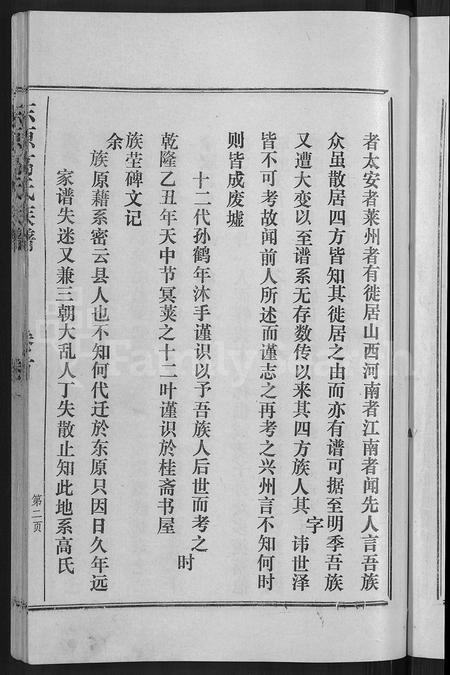 者太安者莱州者有徙居山西河南者江南者闻先人言吾族
众虽散居四方皆知其徙居之由而亦有谱可据至明季吾族
又遭大变以至谱系无存数传以来其四方族人其字讳世泽
皆不可考故闻前人所述而谨志之再考之兴州言不知何时
则皆成废墟
十二代孙鹤年沐手谨识以予吾族人后世而考之时
乾隆乙丑年天中节冥荚之十二叶谨识於桂斋书屋
族茔碑文记
余族原藉系密云县人也不知何代迁於东原只因日久年远
家谱失迷又兼三朝大乱人丁失散止知此地系高氏
东原高氏族谱
第二页
FamilySearch